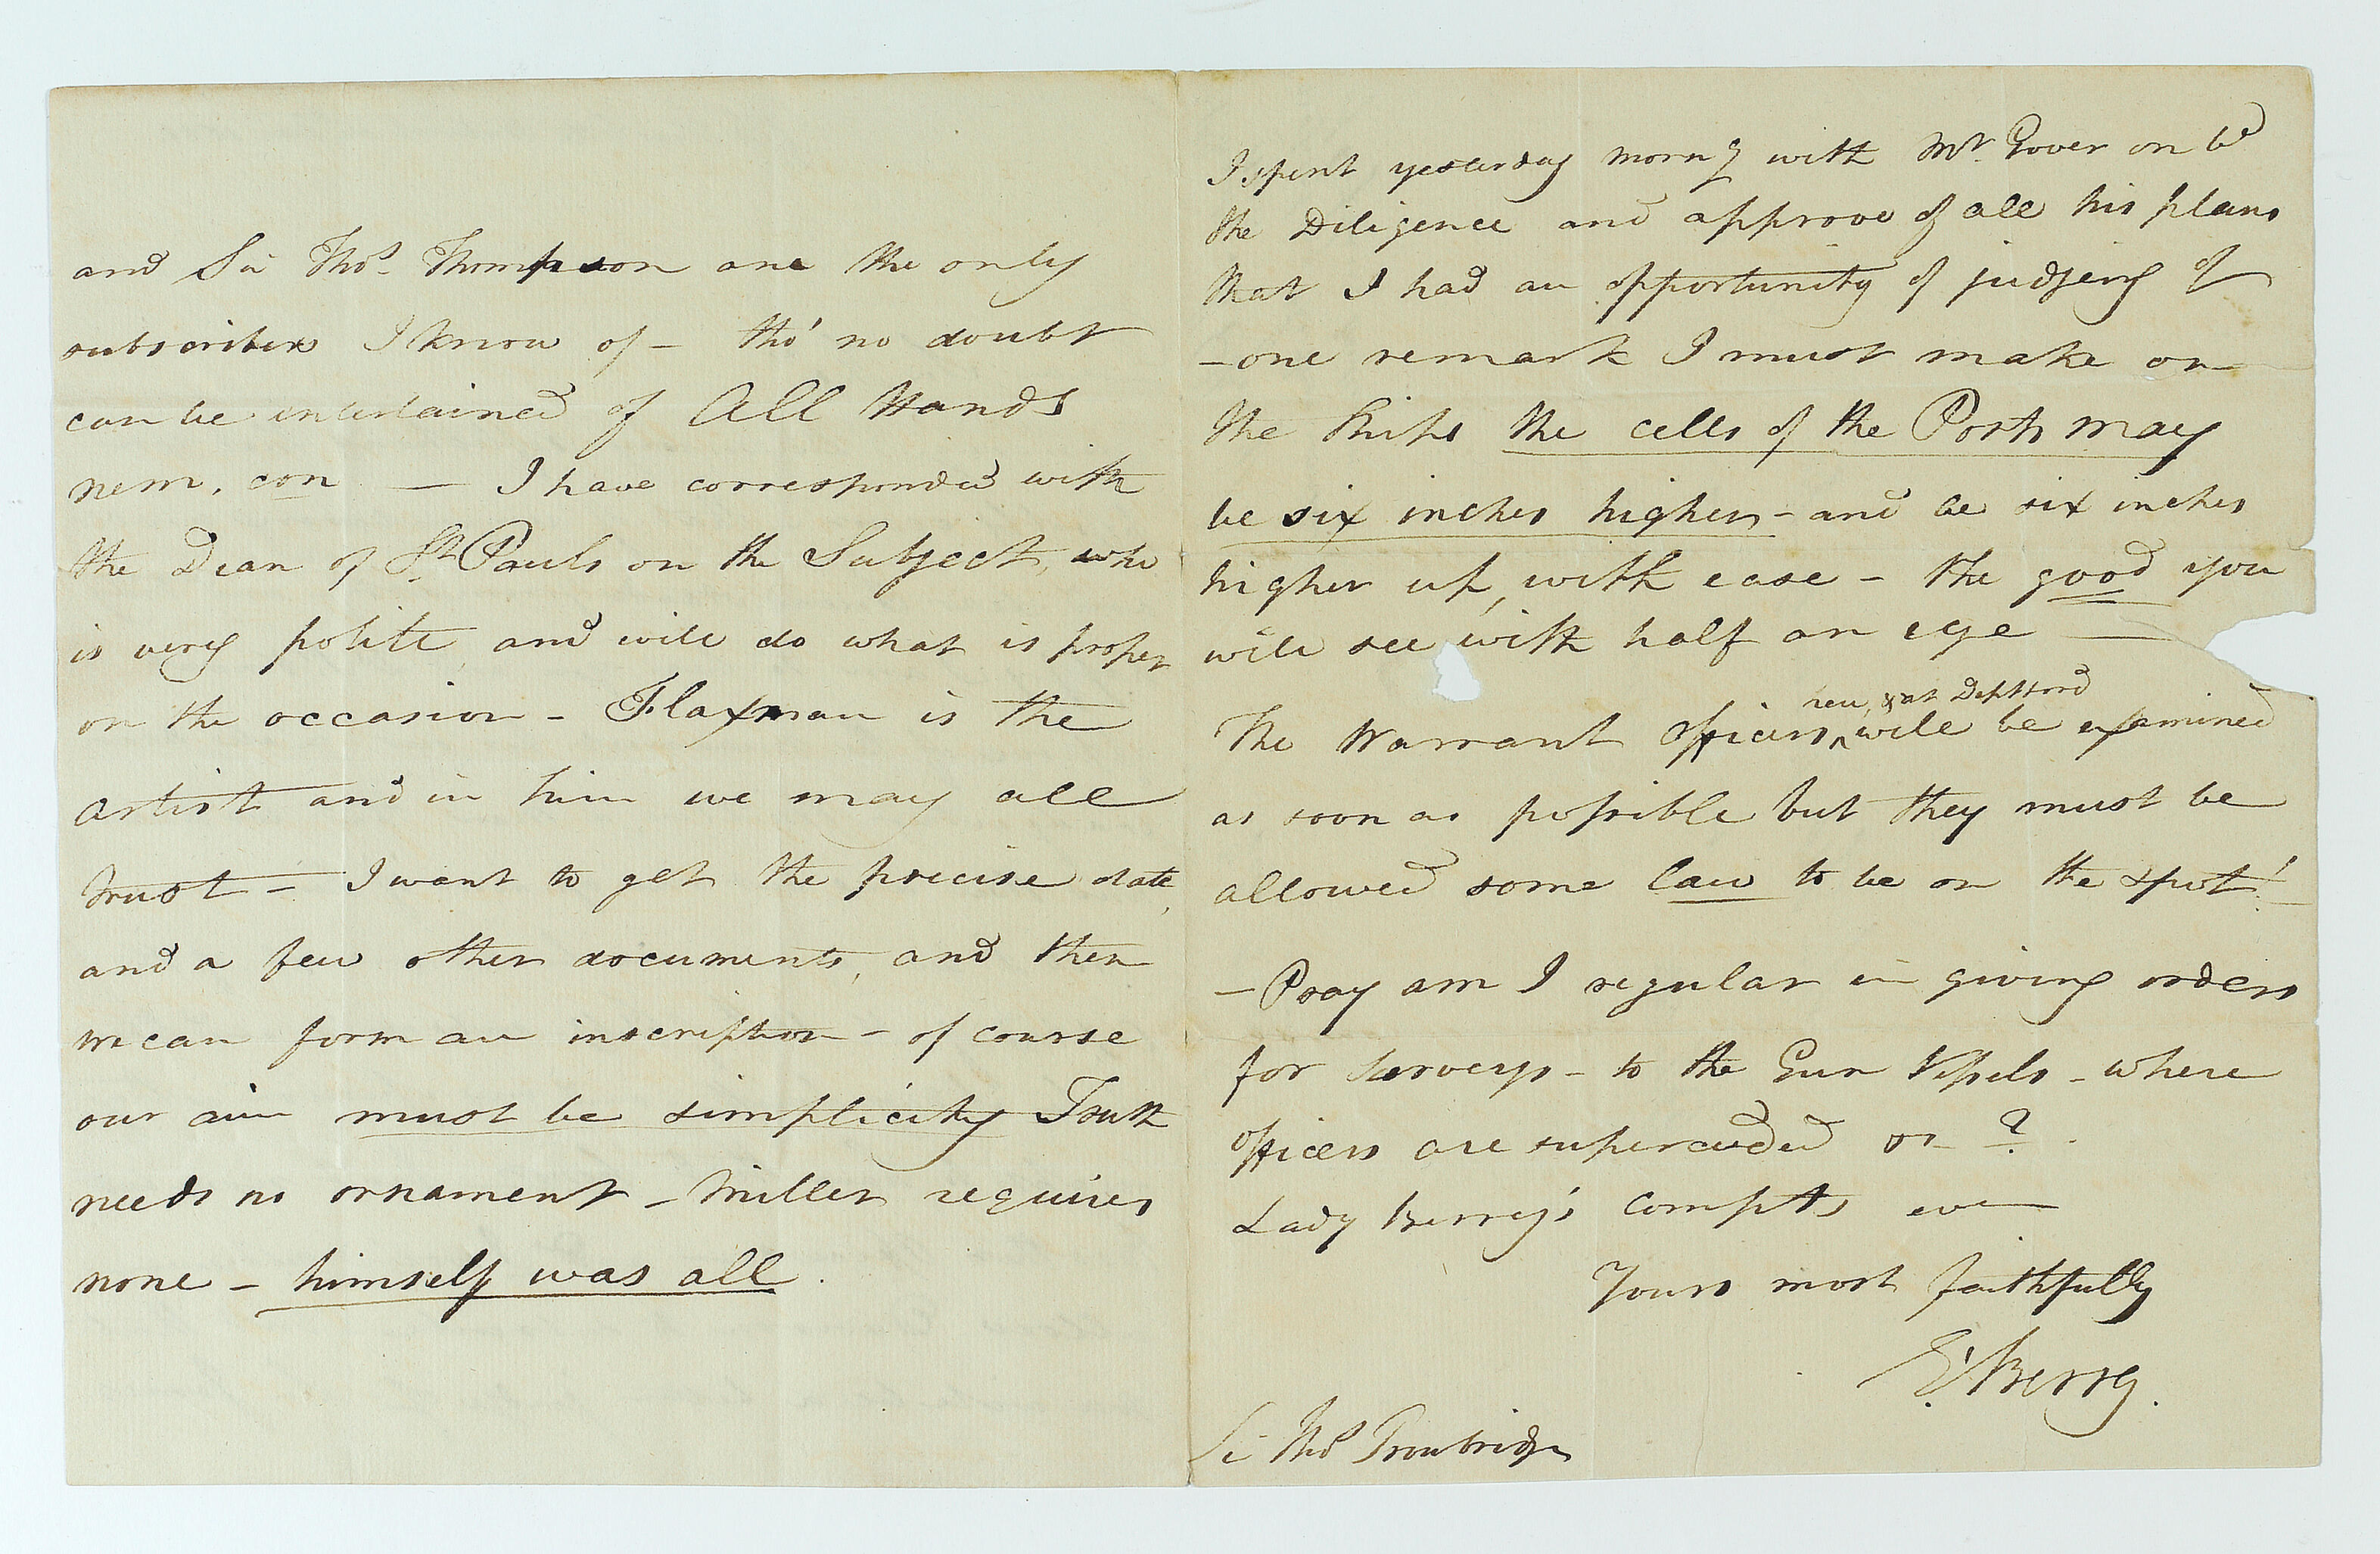 and Sir Thos. Thompson are the only
subscribers I know of – tho' no doubt
can be entertained of All Hands
nem. con — I have corresponded with
the Dean of St. Pauls on the Subject, who
is very polite, and will do what is proper
on the occasion – Flaxman is the
artist and in him we may all
trust – I want to get the precise date,
and a few other documents, and then
we can form an inscription – of course
our aim must be simplicity Truth
needs no ornament – Miller requires
none – himself was all.
I spent yesterday morng with Mr. Gover on bd
the Diligence and approve of all his plans
that I had an opportunity of judging of
– one remark I must make on
the Ships the cells of the Ports may
be six inches higher – and be six inches
higher up, with ease – the good you
will see with half an eye —
new, & at Deptford
The Warrant Officers ^ will be examined
as soon as possible but they must be
allowed some law to be on the spot! –
– Pray am I regular in giving orders
for Surveys – to the Gun Vessels – where
officers are superceeded or – ?
Lady Berry's compts
Yours most faithfully
E: Berry.
Sir Thos Troubridge